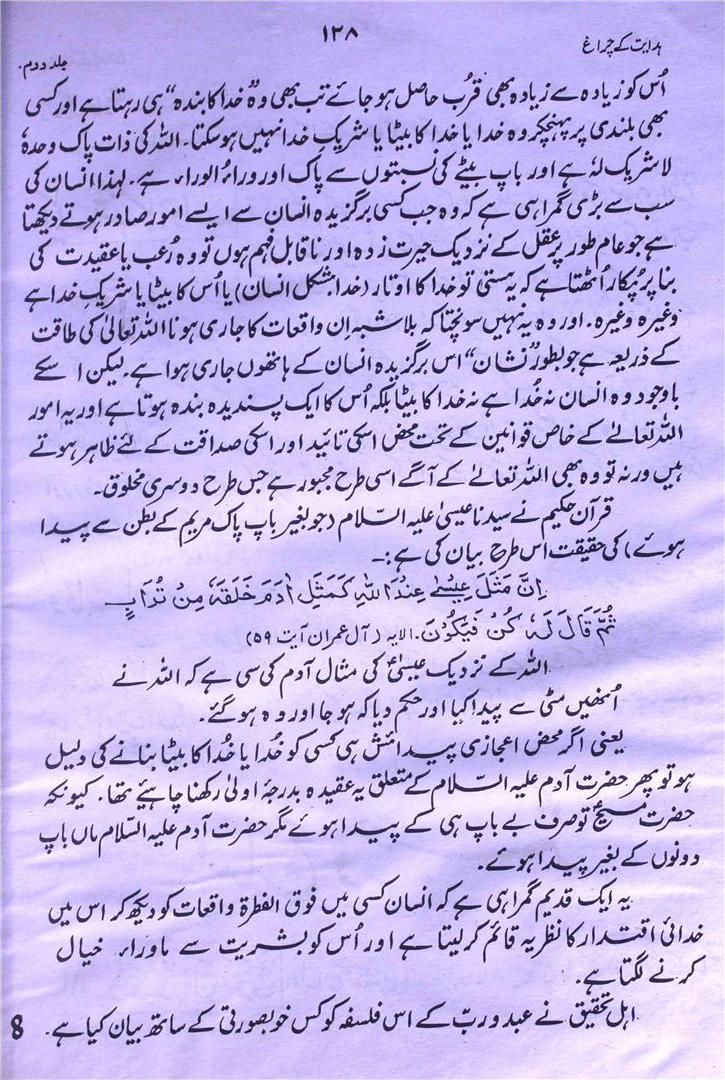 ہدایت کے چراغ
۱۲۸
جلد دوم۔
اُس کو زیادہ سے زیادہ بھی قُرب حاصل ہو جائے تب بھی وہ "خدا کا بندہ" ہی رہتا ہے اور کسی
بھی بلندی پر پہنچکر وہ خدا یا خدا کا بیٹا یا شریکِ خدا نہیں ہو سکتا۔ اللہ کی ذات پاک وحدہٗ
لا شریک لہٗ ہے اور باپ بیٹے کی نسبتوں سے پاک اور وراءُ الوراء ہے۔ لہذا انسان کی
سب سے بڑی گمراہی ہے کہ وہ جب کسی برگزیدہ انسان سے ایسے امور صادر ہوتے دیکھتا
ہے جو عام طور پر عقل کے نزدیک حیرت زدہ اور ناقابل فہم ہوں تو وہ رُعب یا عقیدت کی
بنا پر پُکار اُٹھتا ہے کہ یہ ہستی تو خدا کا اوتار (خدا بشکل انسان) یا اُس کا بیٹا یا شریکِ خدا ہے
وغیرہ وغیرہ۔ اور وہ یہ نہیں سونچتا کہ بلاشبہ اِن واقعات کا جاری ہونا اللہ تعالیٰ کی طاقت
کے ذریعہ ہے جو بطور "نشان" اس برگزیدہ انسان کے ہاتھوں جاری ہوا ہے۔ لیکن اسکے
باوجود وہ انسان نہ خُدا ہے نہ خدا کا بیٹا بلکہ اُس کا ایک پسندیدہ بندہ ہوتا ہے اور یہ امور
اللہ تعالےٰ کے خاص قوانین کے تحت محض اسکی تائید اور اسکی صداقت کے لئے ظاہر ہوتے
ہیں ورنہ تو وہ بھی اللہ تعالےٰ کے آگے اسی طرح مجبور ہے جس طرح دوسری مخلوق۔
قرآن حکیم نے سیدنا عیسیٰ علیہ السّلام (جو بغیر باپ پاک مریم کے بطن سے پیدا
ہوئے) کی حقیقت اس طرح بیان کی ہے:۔
اِنَّ مَثَلَ عِیْسٰی عِنْدَ اللّٰہِ کَمَثَلِ اٰدَمَ خَلَقَہٗ مِنْ تُرَابٍ
ثُمَّ قَالَ لَہٗ کُنْ فَیَکُوْنَ۔ الایہ (آل عمران آیت ۵۹)
اللہ کے نزدیک عیسیٰؑ کی مثال آدم کی سی ہے کہ اللہ نے
اُنھیں مٹی سے پیدا کیا اور حکم دیا کہ ہو جا اور وہ ہو گئے۔
یعنی اگر محض اعجازی پیدائش ہی کسی کو خُدا یا خُدا کا بیٹا بنانے کی دلیل
ہو تو پھر حضرت آدم علیہ السّلام کے متعلق یہ عقیدہ بدرجۂ اولیٰ رکھنا چاہیئے تھا۔ کیونکہ
حضرت مسیحؑ تو صرف بے باپ ہی کے پیدا ہوئے مگر حضرت آدم علیہ السّلام ماں باپ
دونوں کے بغیر پیدا ہوئے۔
یہ ایک قدیم گمراہی ہے کہ انسان کسی میں فوق الفطرۃ واقعات کو دیکھ کر اس میں
خدائی اقتدار کا نظریہ قائم کر لیتا ہے اور اُس کو بشریت سے ماوراء خیال
کرنے لگتا ہے۔
اہل تحقیق نے عبد و ربّ کے اس فلسفہ کو کس خوبصورتی کے ساتھ بیان کیا ہے۔
8